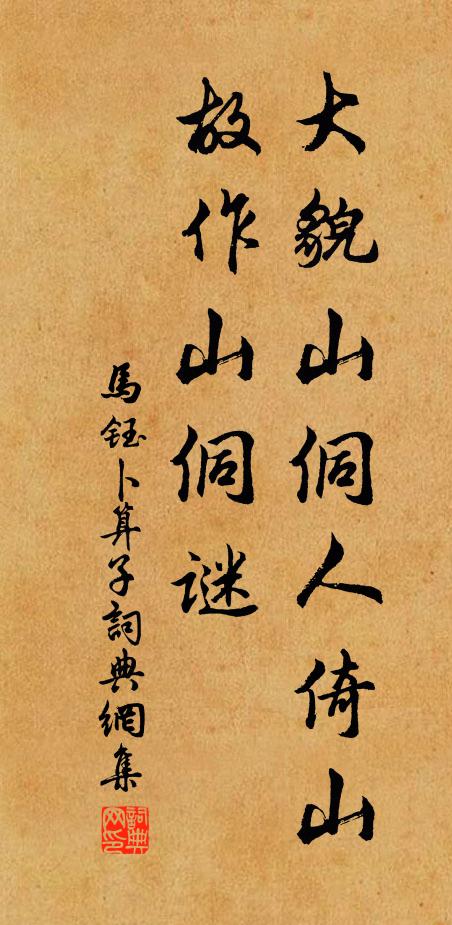 大貌山侗人倚山
故作山侗谜
馬鈺卜算子詞典網集
詞典网印